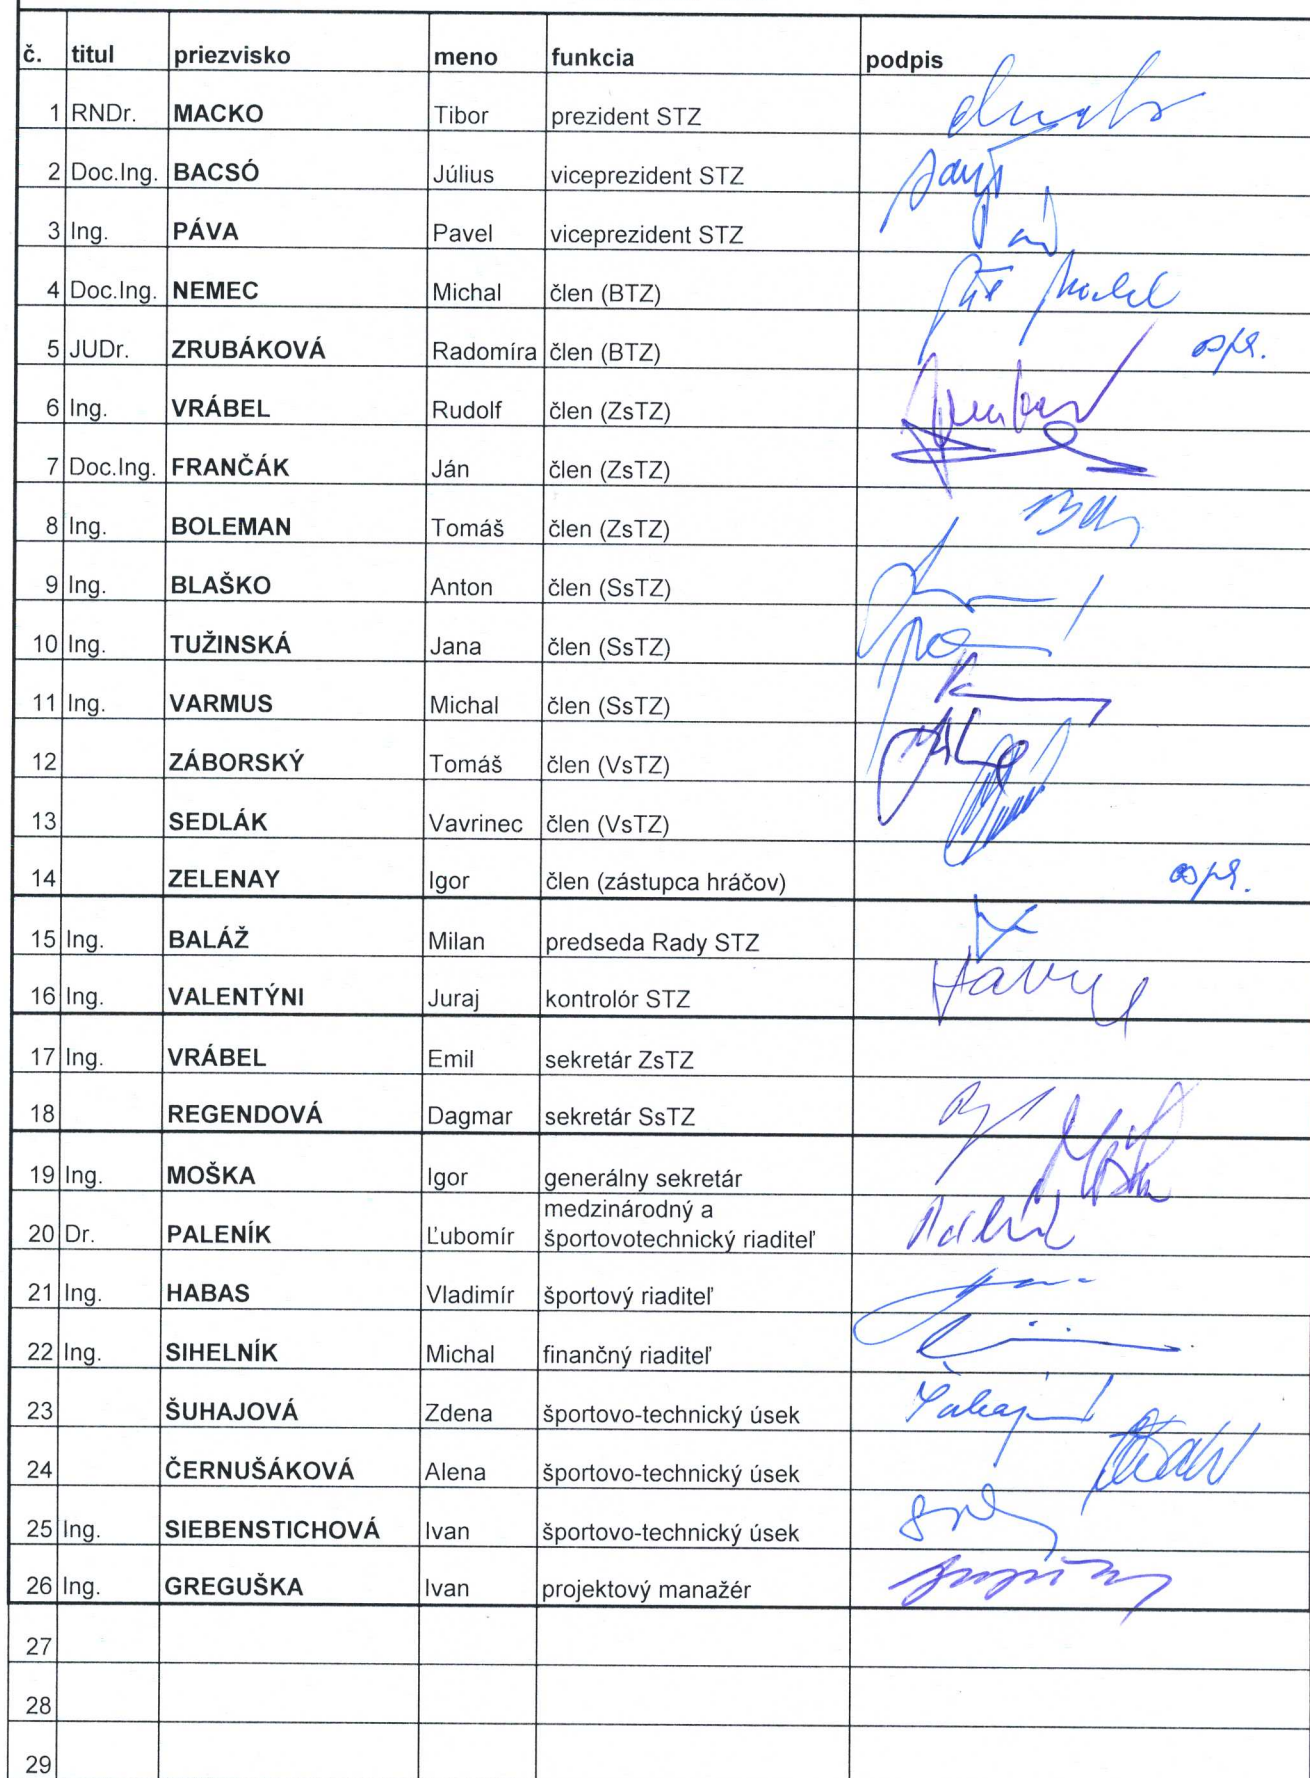 č. titul priezvisko meno funkcia podpis
1 RNDr. MACKO Tibor prezident STZ
2 Doc.Ing. BACSÓ Július viceprezident STZ
3 Ing. PÁVA Pavel viceprezident STZ
4 Doc.Ing. NEMEC Michal člen (BTZ)
5 JUDr. ZRUBÁKOVÁ Radomíra člen (BTZ) ospr.
6 Ing. VRÁBEL Rudolf člen (ZsTZ)
7 Doc.Ing. FRANČÁK Ján člen (ZsTZ)
8 Ing. BOLEMAN Tomáš člen (ZsTZ)
9 Ing. BLAŠKO Anton člen (SsTZ)
10 Ing. TUŽINSKÁ Jana člen (SsTZ)
11 Ing. VARMUS Michal člen (SsTZ)
12 ZÁBORSKÝ Tomáš člen (VsTZ)
13 SEDLÁK Vavrinec člen (VsTZ)
14 ZELENAY Igor člen (zástupca hráčov) ospr.
15 Ing. BALÁŽ Milan predseda Rady STZ
16 Ing. VALENTÝNI Juraj kontrolór STZ
17 Ing. VRÁBEL Emil sekretár ZsTZ
18 REGENDOVÁ Dagmar sekretár SsTZ
19 Ing. MOŠKA Igor generálny sekretár
medzinárodný a
20 Dr. PALENÍK Ľubomír športovotechnický riaditeľ
21 Ing. HABAS Vladimír športový riaditeľ
22 Ing. SIHELNÍK Michal finančný riaditeľ
23 ŠUHAJOVÁ Zdena športovo-technický úsek
24 ČERNUŠÁKOVÁ Alena športovo-technický úsek
25 Ing. SIEBENSTICHOVÁ Ivan športovo-technický úsek
26 Ing. GREGUŠKA Ivan projektový manažér
27
28
29